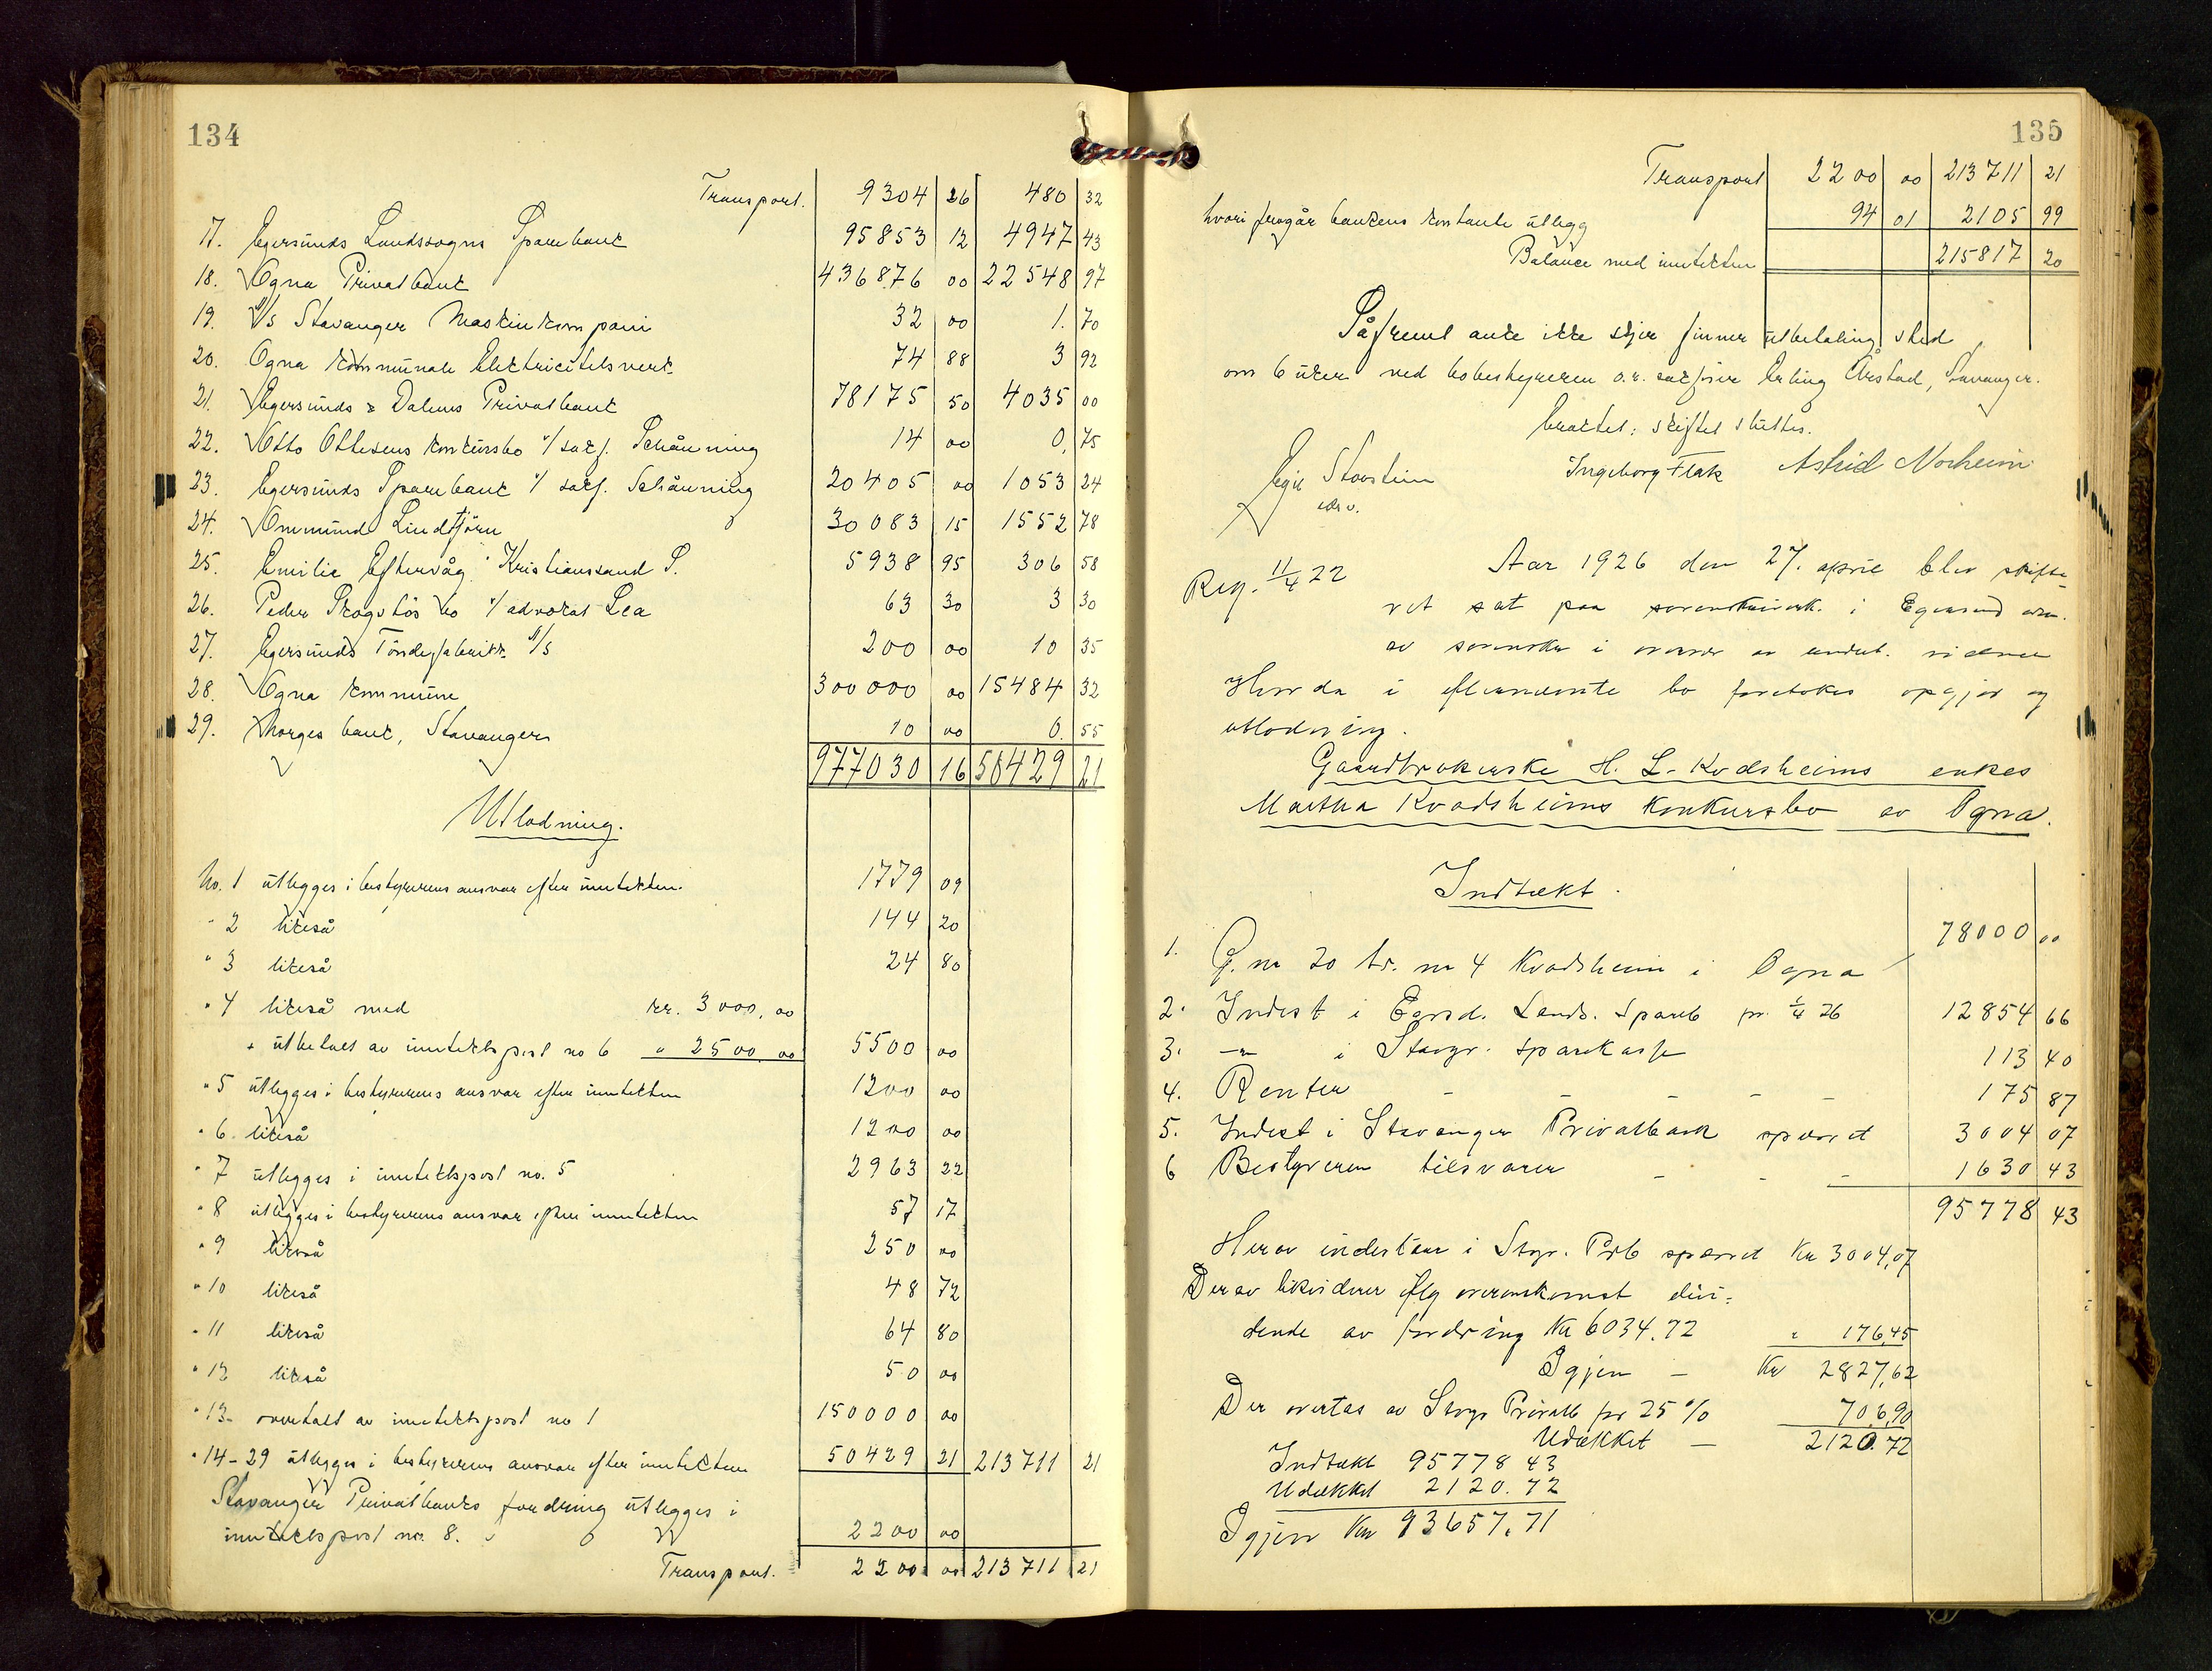 134
Transport. 9304 26 480 32
17. Egersunds Landssogns Sparebank 95853 12 4947 43
18. Ogna Privatbank 436876 00 22548 97
19. A/S Stavanger Maskinkompani 32 00 1. 70
20. Ogna kommunale Elektricitetsverk 74 88 3 92
21. Egersunds & Dalenes Privatbank 78175 50 4035 00
22. Otto Ottesens konkursbo v/ sakf. Schånning 14 00 0, 75
23. Egersunds Sparebank v/ sakf. Schånning 20405 00 1053 24
24. Ommund Lindtjörn 30083 15 1552 78
25. Emilie Eftervåg, Kristianssand S. 5938 95 306 58
26. Peder Skogslös bo v/ advokat Lea 63 30 3 30
27. Egersunds Töndefabrikk A/S 200 00 10 35
28. Ogna kommune 300000 00 15484 32
29. Norges bank, Stavanger 10 00 0. 55
977030 16 50429 21
Utlodning.
No. 1 utlegges i bestyrerens ansvar efter inntekten. 1779 09
" 2 likeså 144 20
" 3 likeså 24 80
" 4 likeså med kr. 3000,00
+ utbetalt av inntektspost no 6 " 2500,00 5500 00
" 5 utlegges i bestyrerens ansvar efter inntekten 1200 00
" 6. likeså 1200 00
" 7 utlegges i inntektspost no. 5 2963 22
" 8 utlegges i bestyrerens ansvar efter inntekten 57 17
" 9 likeså 250 00
" 10 likeså 48 72
" 11 likeså 64 80
" 12 likeså 50 00
" 13 overtalt av inntektspost no 1 150000 00
" 14-29 utlegges i bestyrerens ansvar efter inntekten 50429 21 213711 21
Stavanger Privatbanks fordring utlegges i
inntektspost no. 8. 2200 00
Transport. 2200 00 213711 21
135
Transport 2200 00 213711 21
hvori fragår bankens kontante utlegg 94 01 2105 99
Balance med inntekten 215817 20
Såfremt anke ikke skjer finner utbetaling sted
om 6 uker ved bobestyreren o.r. sakfører Erling Årstad, Stavanger.
Oraktet: skiftet sluttes.
Egil Storstein Ingeborg Flak Astrid Norheim
edsv.
Reg. 11/4 22 Aar 1926 den 27. april blev skifte-
ret sat paa sorenskriverk. i Egersund adm.
av sorenskr i overvær av undert. vidner
Hvorda i efternevnte bo foretokes opgjør og
utlodning.
Gaardbrukerske H. L. Kvdsheims enkes
Martha Kvadsheims konkursbo av Ogna.
Indtækt.
1. G. nr 20 br. nr 4 Kvadsheim i Ogna 78000 00
2. Indest i Egersd. Lands. Spareb pr. 1/4 26 12854 66
3. -"- i Stavgr. sparekasse 113 40
4. Renter - - - - - 175 87
5. Indest i Stavanger Privatbank sperret 3004 07
6 Bestyreren tilsvarer - - - 1630 43
95778 43
Herav indestaar i Stgr. Prb sperret Kr 3004,07
Derav likviderer iflg overenskomst divi-
dende av fordring Kr 6034.72 " 176,45
Igjen - Kr 2827,62
Der overtas av Stvgr Privatb for 25 % 706,90
Udækket - 2120.72
Indtækt 95778 43
Udækket 2120.72
Igjen Kr 93657.71